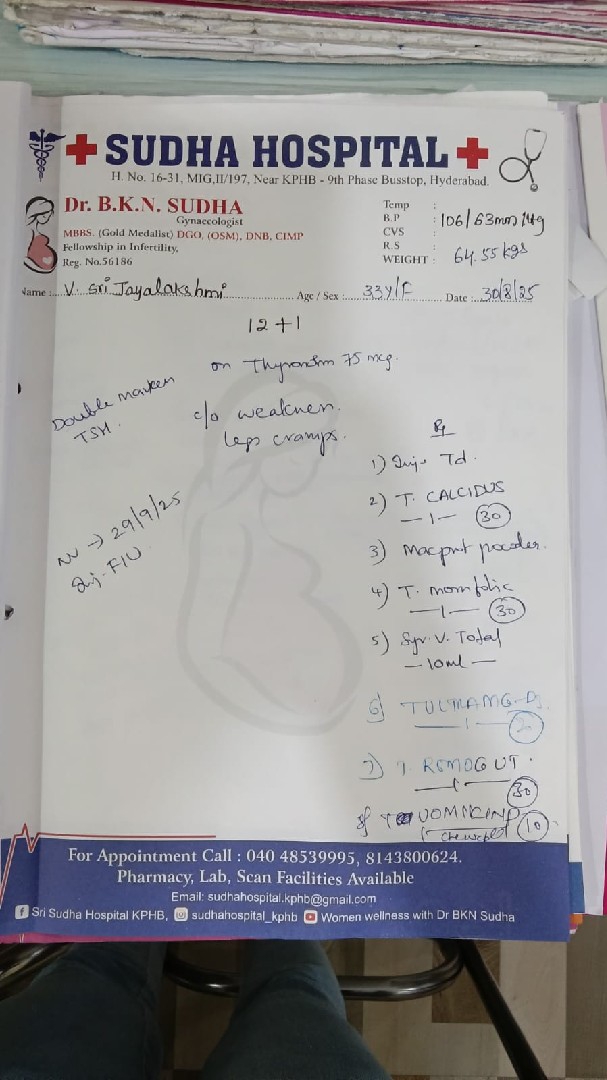 SUDHA HOSPITAL
H. No. 16-31, MIG,II/197, Near KPHB - 9th Phase Busstop, Hyderabad.
Dr. B.K.N. SUDHA
Gynaecologist
MBBS. (Gold Medalist) DGO, (OSM), DNB, CIMP
Fellowship in Infertility,
Reg. No.56186
Temp :
B.P : 106/63mm Hg
CVS :
R.S :
WEIGHT : 64.55 kgs
Name : V. Sri Jayalakshmi Age / Sex : 33y/F Date : 30/8/25
12+1
on Thyronorm 75 mcg.
Double marker
TSH.
c/o weakness.
legs cramps.
NV → 29/9/25
Inj-
Rx
1) Inj. Td.
2) T. CALCIDUS
— 1 — 30
3) powder.
4) T. momfolic
— 1 — 30
5) Syr. V. Total
— 10ml —
6)
— 1 —
7) T.
— 1 — 30
8) T
10
For Appointment Call : 040 48539995, 8143800624.
Pharmacy, Lab, Scan Facilities Available
Email: sudhahospital.kphb@gmail.com
Sri Sudha Hospital KPHB, sudhahospital_kphb Women wellness with Dr BKN Sudha